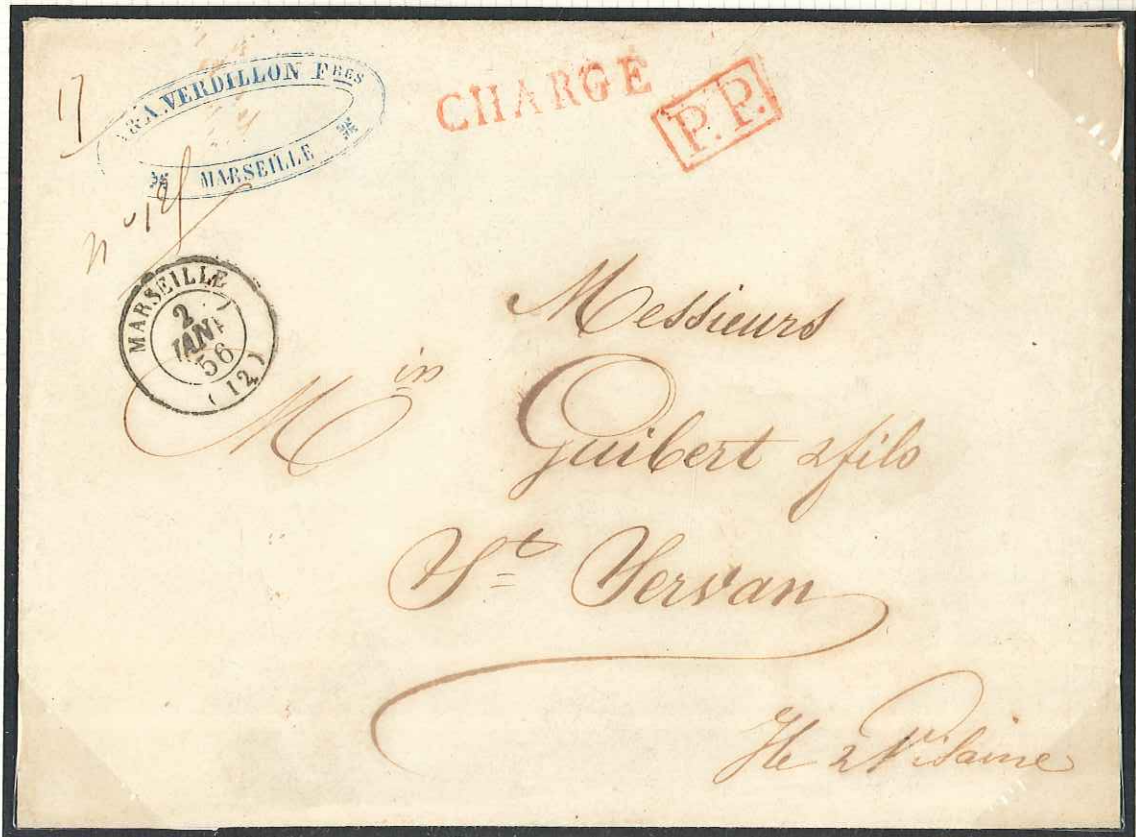 17
&A. VERDILLON FRES
MARSEILLE
CHARGÉ
P.P.
MARSEILLE
2
JANV
56
(12)
Messieurs
Min Guibert & fils
St Servan
Ile & Vilaine